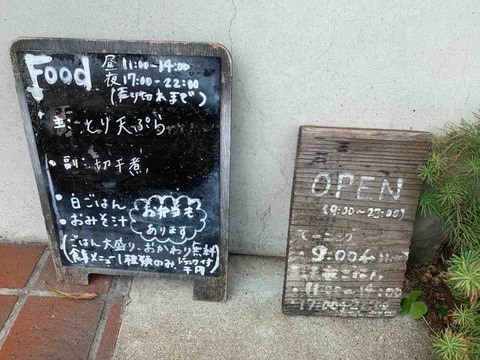 Food
昼 11:00-14:00
夜 17:00-22:00
(売り切れまで)
主:とり天ぷら
・副:切干煮
・白ごはん
・おみそ汁
お弁当も
あります
(ごはん大盛り・おかわり無料)
(食事メニュー1種類のみ、ドリンク付
千円
OPEN
(9:30-23:00)
モーニング
・9:00
・11:00-14:00
17:00